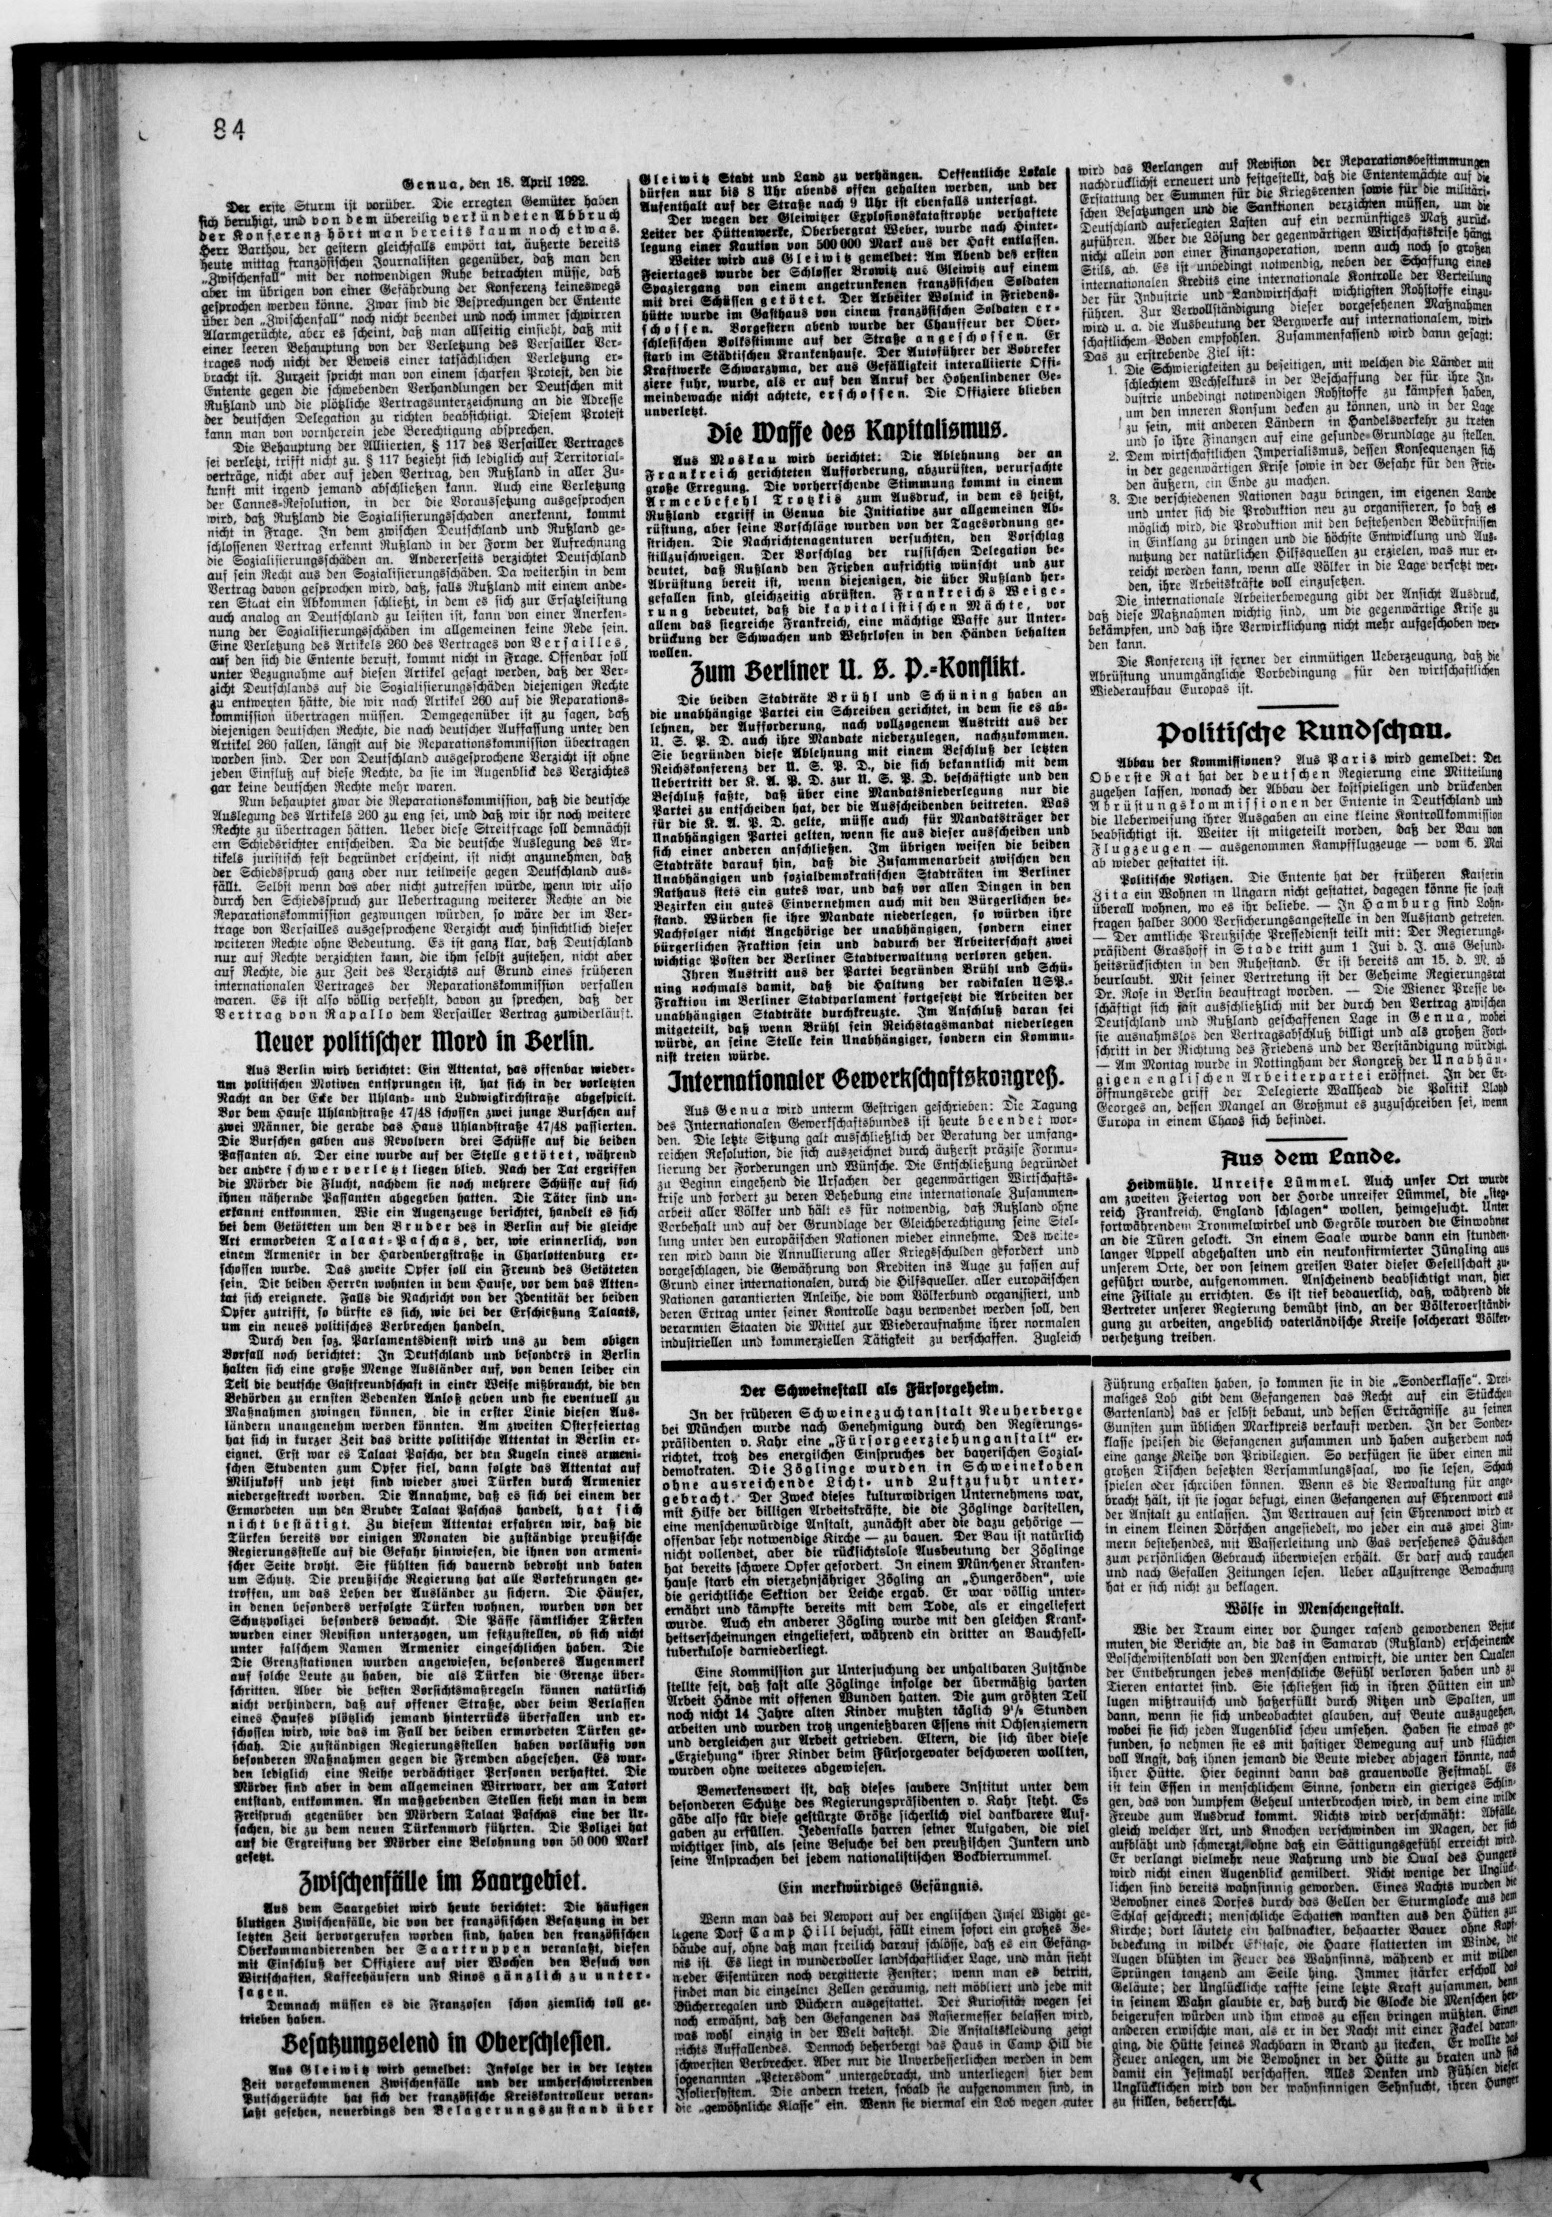 84
Genua, den 18. April 1922.
Der erste Sturm ist vorüber. Die erregten Gemüter haben
sich beruhigt, und von dem übereilig verkündeten Abbruch
der Konferenz hört man bereits kaum noch etwas.
Herr Barthou, der gestern gleichfalls empört tat, äußerte bereits
heute mittag französischen Journalisten gegenüber, daß man den
„Zwischenfall" mit der notwendigen Ruhe betrachten müsse, daß
aber im übrigen von einer Gefährdung der Konferenz keineswegs
gesprochen werden könne. Zwar sind die Besprechungen der Entente
über den „Zwischenfall" noch nicht beendet und noch immer schwirren
Alarmgerüchte, aber es scheint, daß man allseitig einsieht, daß mit
einer leeren Behauptung von der Verletzung des Versailler Ver-
trages noch nicht der Beweis einer tatsächlichen Verletzung er-
bracht ist. Zurzeit spricht man von einem scharfen Protest, den die
Entente gegen die schwebenden Verhandlungen der Deutschen mit
Rußland und die plötzliche Vertragsunterzeichnung an die Adresse
der deutschen Delegation zu richten beabsichtigt. Diesem Protest
kann man von vornherein jede Berechtigung absprechen.
Die Behauptung der Alliierten, § 117 des Versailler Vertrages
sei verletzt, trifft nicht zu. § 117 bezieht sich lediglich auf Territorial-
verträge, nicht aber auf jeden Vertrag, den Rußland in aller Zu-
kunft mit irgend jemand abschließen kann. Auch eine Verletzung
der Cannes-Resolution, in der die Voraussetzung ausgesprochen
wird, daß Rußland die Sozialisierungsschäden anerkennt, kommt
nicht in Frage. In dem zwischen Deutschland und Rußland ge-
schlossenen Vertrag erkennt Rußland in der Form der Aufrechnung
die Sozialisierungsschäden an. Andererseits verzichtet Deutschland
auf sein Recht aus den Sozialisierungsschäden. Da weiterhin in dem
Vertrag davon gesprochen wird, daß, falls Rußland mit einem ande-
ren Staat ein Abkommen schließt, in dem es sich zur Ersatzleistung
auch analog an Deutschland zu leisten ist, kann von einer Anerken-
nung der Sozialisierungsschäden im allgemeinen keine Rede sein.
Eine Verletzung des Artikels 260 des Vertrages von Versailles,
auf den sich die Entente beruft, kommt nicht in Frage. Offenbar soll
unter Bezugnahme auf diesen Artikel gesagt werden, daß der Ver-
zicht Deutschlands auf die Sozialisierungsschäden diejenigen Rechte
zu entwerten hätte, die wir nach Artikel 260 auf die Reparations-
kommission übertragen müssen. Demgegenüber ist zu sagen, daß
diejenigen deutschen Rechte, die nach deutscher Auffassung unter den
Artikel 260 fallen, längst auf die Reparationskommission übertragen
worden sind. Der von Deutschland ausgesprochene Verzicht ist ohne
jeden Einfluß auf diese Rechte, da sie im Augenblick des Verzichtes
gar keine deutschen Rechte mehr waren.
Nun behauptet zwar die Reparationskommission, daß die deutsche
Auslegung des Artikels 260 zu eng sei, und daß wir ihr noch weitere
Rechte zu übertragen hätten. Ueber diese Streitfrage soll demnächst
ein Schiedsrichter entscheiden. Da die deutsche Auslegung des Ar-
tikels juristisch fest begründet erscheint, ist nicht anzunehmen, daß
der Schiedsspruch ganz oder nur teilweise gegen Deutschland aus-
fällt. Selbst wenn das aber nicht zutreffen würde, wenn wir also
durch den Schiedsspruch zur Uebertragung weiterer Rechte an die
Reparationskommission gezwungen würden, so wäre der im Ver-
trage von Versailles ausgesprochene Verzicht auch hinsichtlich dieser
weiteren Rechte ohne Bedeutung. Es ist ganz klar, daß Deutschland
nur auf Rechte verzichten kann, die ihm selbst zustehen, nicht aber
auf Rechte, die zur Zeit des Verzichts auf Grund eines früheren
internationalen Vertrages der Reparationskommission verfallen
waren. Es ist also völlig verfehlt, davon zu sprechen, daß der
Vertrag von Rapallo dem Versailler Vertrag zuwiderläuft.
Neuer politischer Mord in Berlin.
Aus Berlin wird berichtet: Ein Attentat, das offenbar wieder-
um politischen Motiven entsprungen ist, hat sich in der vorletzten
Nacht an der Ecke der Uhland- und Ludwigkirchstraße abgespielt.
Vor dem Hause Uhlandstraße 47/48 schossen zwei junge Burschen auf
zwei Männer, die gerade das Haus Uhlandstraße 47/48 passierten.
Die Burschen gaben aus Revolvern drei Schüsse auf die beiden
Passanten ab. Der eine wurde auf der Stelle getötet, während
der andere schwer verletzt liegen blieb. Nach der Tat ergriffen
die Mörder die Flucht, nachdem sie noch mehrere Schüsse auf sich
ihnen nähernde Passanten abgegeben hatten. Die Täter sind un-
erkannt entkommen. Wie ein Augenzeuge berichtet, handelt es sich
bei dem Getöteten um den Bruder des in Berlin auf die gleiche
Art ermordeten Talaat-Paschas, der, wie erinnerlich, von
einem Armenier in der Hardenbergstraße in Charlottenburg er-
schossen wurde. Das zweite Opfer soll ein Freund des Getöteten
sein. Die beiden Herren wohnten in dem Hause, vor dem das Atten-
tat sich ereignete. Falls die Nachricht von der Identität der beiden
Opfer zutrifft, so dürfte es sich, wie bei der Erschießung Talaats,
um ein neues politisches Verbrechen handeln.
Durch den soz. Parlamentsdienst wird uns zu dem obigen
Vorfall noch berichtet: In Deutschland und besonders in Berlin
halten sich eine große Menge Ausländer auf, von denen leider ein
Teil die deutsche Gastfreundschaft in einer Weise mißbraucht, die den
Behörden zu ernsten Bedenken Anlaß geben und sie eventuell zu
Maßnahmen zwingen können, die in erster Linie diesen Aus-
ländern unangenehm werden könnten. Am zweiten Osterfeiertag
hat sich in kurzer Zeit das dritte politische Attentat in Berlin er-
eignet. Erst war es Talaat Pascha, der den Kugeln eines armeni-
schen Studenten zum Opfer fiel, dann folgte das Attentat auf
Miljukoff und jetzt sind wieder zwei Türken durch Armenier
niedergestreckt worden. Die Annahme, daß es sich bei einem der
Ermordeten um den Bruder Talaat Paschas handelt, hat sich
nicht bestätigt. Zu diesem Attentat erfahren wir, daß die
Türken bereits vor einigen Monaten die zuständige preußische
Regierungsstelle auf die Gefahr hinwiesen, die ihnen von armeni-
scher Seite droht. Sie fühlten sich dauernd bedroht und baten
um Schutz. Die preußische Regierung hat alle Vorkehrungen ge-
troffen, um das Leben der Ausländer zu sichern. Die Häuser,
in denen besonders verfolgte Türken wohnen, wurden von der
Schutzpolizei besonders bewacht. Die Pässe sämtlicher Türken
wurden einer Revision unterzogen, um festzustellen, ob sich nicht
unter falschem Namen Armenier eingeschlichen haben. Die
Die Grenzstationen wurden angewiesen, besonderes Augenmerk
auf solche Leute zu haben, die als Türken die Grenze über-
schritten. Aber die besten Vorsichtsmaßregeln können natürlich
nicht verhindern, daß auf offener Straße, oder beim Verlassen
eines Hauses plötzlich jemand hinterrücks überfallen und er-
schossen wird, wie das im Fall der beiden ermordeten Türken ge-
schah. Die zuständigen Regierungsstellen haben vorläufig von
besonderen Maßnahmen gegen die Fremden abgesehen. Es wur-
den lediglich eine Reihe verdächtiger Personen verhaftet. Die
Mörder sind aber in dem allgemeinen Wirrwarr, der am Tatort
entstand, entkommen. An maßgebenden Stellen sieht man in dem
Freispruch gegenüber den Mördern Talaat Paschas eine der Ur-
sachen, die zu dem neuen Türkenmord führten. Die Polizei hat
auf die Ergreifung der Mörder eine Belohnung von 50 000 Mark
gesetzt.
Zwischenfälle im Saargebiet.
Aus dem Saargebiet wird heute berichtet: Die häufigen
blutigen Zwischenfälle, die von der französischen Besatzung in der
letzten Zeit hervorgerufen worden sind, haben den französischen
Oberkommandierenden der Saartruppen veranlaßt, diesen
mit Einschluß der Offiziere auf vier Wochen den Besuch von
Wirtschaften, Kaffeehäusern und Kinos gänzlich zu unter-
sagen.
Demnach müssen es die Franzosen schon ziemlich toll ge-
trieben haben.
Besatzungselend in Oberschlesien.
Aus Gleiwitz wird gemeldet: Infolge der in der letzten
Zeit vorgekommenen Zwischenfälle und der umherschwirrenden
Putschgerüchte hat sich der französische Kreiskontrolleur veran-
laßt gesehen, neuerdings den Belagerungszustand über
Gleiwitz Stadt und Land zu verhängen. Oeffentliche Lokale
dürfen nur bis 8 Uhr abends offen gehalten werden, und der
Aufenthalt auf der Straße nach 9 Uhr ist ebenfalls untersagt.
Der wegen der Gleiwitzer Explosionskatastrophe verhaftete
Leiter der Hüttenwerke, Oberbergrat Weber, wurde nach Hinter-
legung einer Kaution von 500 000 Mark aus der Haft entlassen.
Weiter wird aus Gleiwitz gemeldet: Am Abend des ersten
Feiertages wurde der Schlosser Browitz aus Gleiwitz auf einem
Spaziergang von einem angetrunkenen französischen Soldaten
mit drei Schüssen getötet. Der Arbeiter Wolnick in Friedens-
hütte wurde im Gasthaus von einem französischen Soldaten er-
schossen. Vorgestern abend wurde der Chauffeur der Ober-
schlesischen Volksstimme auf der Straße angeschossen. Er
starb im Städtischen Krankenhause. Der Autoführer der Bobreker
Kraftwerke Schwarzyma, der aus Gefälligkeit interallierte Offi-
ziere fuhr, wurde, als er auf den Anruf der Hohenlindener Ge-
meindewache nicht achtete, erschossen. Die Offiziere blieben
unverletzt.
Die Waffe des Kapitalismus.
Aus Moskau wird berichtet: Die Ablehnung der an
Frankreich gerichteten Aufforderung, abzurüsten, verursachte
große Erregung. Die vorherrschende Stimmung kommt in einem
Armeebefehl Trotzkis zum Ausdruck, in dem es heißt,
Rußland ergriff in Genua die Initiative zur allgemeinen Ab-
rüstung, aber seine Vorschläge wurden von der Tagesordnung ge-
strichen. Die Nachrichtenagenturen versuchten, den Vorschlag
stillzuschweigen. Der Vorschlag der russischen Delegation be-
deutet, daß Rußland den Frieden aufrichtig wünscht und zur
Abrüstung bereit ist, wenn diejenigen, die über Rußland her-
gefallen sind, gleichzeitig abrüsten. Frankreichs Weige-
rung bedeutet, daß die kapitalistischen Mächte, vor
allem das siegreiche Frankreich, eine mächtige Waffe zur Unter-
drückung der Schwachen und Wehrlosen in den Händen behalten
wollen.
Zum Berliner U. S. P.-Konflikt.
Die beiden Stadträte Brühl und Schüning haben an
die unabhängige Partei ein Schreiben gerichtet, in dem sie es ab-
lehnen, der Aufforderung, nach vollzogenem Austritt aus der
U. S. P. D. auch ihre Mandate niederzulegen, nachzukommen.
Sie begründen diese Ablehnung mit einem Beschluß der letzten
Reichskonferenz der U. S. P. D., die sich bekanntlich mit dem
Uebertritt der K. A. P. D. zur U. S. P. D. beschäftigte und den
Beschluß faßte, daß über eine Mandatsniederlegung nur die
Partei zu entscheiden hat, der die Ausscheidenden beitreten. Was
für die K. A. P. D. gelte, müsse auch für Mandatsträger der
Unabhängigen Partei gelten, wenn sie aus dieser ausscheiden und
sich einer anderen anschließen. Im übrigen weisen die beiden
Stadträte darauf hin, daß die Zusammenarbeit zwischen den
Unabhängigen und sozialdemokratischen Stadträten im Berliner
Rathaus stets ein gutes war, und daß vor allen Dingen in den
Bezirken ein gutes Einvernehmen auch mit den Bürgerlichen be-
stand. Würden sie ihre Mandate niederlegen, so würden ihre
Nachfolger nicht Angehörige der unabhängigen, sondern einer
bürgerlichen Fraktion sein und dadurch der Arbeiterschaft zwei
wichtige Posten der Berliner Stadtverwaltung verloren gehen.
Ihren Austritt aus der Partei begründen Brühl und Schü-
ning nochmals damit, daß die Haltung der radikalen USP.-
Fraktion im Berliner Stadtparlament fortgesetzt die Arbeiten der
unabhängigen Stadträte durchkreuzte. Im Anschluß daran sei
mitgeteilt, daß wenn Brühl sein Reichstagsmandat niederlegen
würde, an seine Stelle kein Unabhängiger, sondern ein Kommu-
nist treten würde.
Internationaler Gewerkschaftskongreß.
Aus Genua wird unterm Gestrigen geschrieben: Die Tagung
des Internationalen Gewerkschaftsbundes ist heute beendet wor-
den. Die letzte Sitzung galt ausschließlich der Beratung der umfang-
reichen Resolution, die sich auszeichnet durch äußerst präzise Formu-
lierung der Forderungen und Wünsche. Die Entschließung begründet
zu Beginn eingehend die Ursachen der gegenwärtigen Wirtschafts-
krise und fordert zu deren Behebung eine internationale Zusammen-
arbeit aller Völker und hält es für notwendig, daß Rußland ohne
Vorbehalt und auf der Grundlage der Gleichberechtigung seine Stel-
lung unter den europäischen Nationen wieder einnehme. Des weite-
ren wird dann die Annullierung aller Kriegsschulden gefordert und
vorgeschlagen, die Gewährung von Krediten ins Auge zu fassen auf
Grund einer internationalen, durch die Hilfsquellen aller europäischen
Nationen garantierten Anleihe, die vom Völkerbund organisiert, und
deren Ertrag unter seiner Kontrolle dazu verwendet werden soll, den
verarmten Staaten die Mittel zur Wiederaufnahme ihrer normalen
industriellen und kommerziellen Tätigkeit zu verschaffen. Zugleich
wird das Verlangen auf Revision der Reparationsbestimmungen
nachdrücklichst erneuert und festgestellt, daß die Ententemächte auf die
Erstattung der Summen für die Kriegsrenten sowie für die militäri-
schen Besatzungen und die Sanktionen verzichten müssen, um die
Deutschland auferlegten Lasten auf ein vernünftiges Maß zurück-
zuführen. Aber die Lösung der gegenwärtigen Wirtschaftskrise hängt
nicht allein von einer Finanzoperation, wenn auch noch so großen
Stils, ab. Es ist unbedingt notwendig, neben der Schaffung eines
internationalen Kredits eine internationale Kontrolle der Verteilung
der für Industrie und Landwirtschaft wichtigsten Rohstoffe einzu-
führen. Zur Vervollständigung dieser vorgesehenen Maßnahmen
wird u. a. die Ausbeutung der Bergwerke auf internationalem, wirt-
schaftlichem Boden empfohlen. Zusammenfassend wird dann gesagt:
Das zu erstrebende Ziel ist:
1. Die Schwierigkeiten zu beseitigen, mit welchen die Länder mit
schlechtem Wechselkurs in der Beschaffung der für ihre In-
dustrie unbedingt notwendigen Rohstoffe zu kämpfen haben,
um den inneren Konsum decken zu können, und in der Lage
zu sein, mit anderen Ländern in Handelsverkehr zu treten
und so ihre Finanzen auf eine gesunde Grundlage zu stellen.
2. Dem wirtschaftlichen Imperialismus, dessen Konsequenzen sich
in der gegenwärtigen Krise sowie in der Gefahr für den Frie-
den äußern, ein Ende zu machen.
3. Die verschiedenen Nationen dazu bringen, im eigenen Lande
und unter sich die Produktion neu zu organisieren, so daß es
möglich wird, die Produktion mit den bestehenden Bedürfnissen
in Einklang zu bringen und die höchste Entwicklung und Aus-
nutzung der natürlichen Hilfsquellen zu erzielen, was nur er-
reicht werden kann, wenn alle Völker in die Lage versetzt wer-
den, ihre Arbeitskräfte voll einzusetzen.
Die internationale Arbeiterbewegung gibt der Ansicht Ausdruck,
daß diese Maßnahmen wichtig sind, um die gegenwärtige Krise zu
bekämpfen, und daß ihre Verwirklichung nicht mehr aufgeschoben wer-
den kann.
Die Konferenz ist ferner der einmütigen Ueberzeugung, daß die
Abrüstung unumgängliche Vorbedingung für den wirtschaftlichen
Wiederaufbau Europas ist.
Politische Rundschau.
Abbau der Kommissionen? Aus Paris wird gemeldet: Der
Oberste Rat hat der deutschen Regierung eine Mitteilung
zugehen lassen, wonach der Abbau der kostspieligen und drückenden
Abrüstungskommissionen der Entente in Deutschland und
die Ueberweisung ihrer Ausgaben an eine kleine Kontrollkommission
beabsichtigt ist. Weiter ist mitgeteilt worden, daß der Bau von
Flugzeugen — ausgenommen Kampfflugzeuge — vom 5. Mai
ab wieder gestattet ist.
Politische Notizen. Die Entente hat der früheren Kaiserin
Zita ein Wohnen in Ungarn nicht gestattet, dagegen könne sie sonst
überall wohnen, wo es ihr beliebe. — In Hamburg sind Lohn-
fragen halber 3000 Versicherungsangestellte in den Ausstand getreten.
— Der amtliche Preußische Pressedienst teilt mit: Der Regierungs-
präsident Grashoff in Stade tritt zum 1 Jui d. J. aus Gesund-
heitsrücksichten in den Ruhestand. Er ist bereits am 15. d. M. ab
beurlaubt. Mit seiner Vertretung ist der Geheime Regierungsrat
Dr. Rose in Berlin beauftragt worden. — Die Wiener Presse be-
schäftigt sich fast ausschließlich mit der durch den Vertrag zwischen
Deutschland und Rußland geschaffenen Lage in Genua, wobei
sie ausnahmslos den Vertragsabschluß billigt und als großen Fort-
schritt in der Richtung des Friedens und der Verständigung würdigt.
— Am Montag wurde in Nottingham der Kongreß der Unabhän-
gigen englischen Arbeiterpartei eröffnet. In der Er-
öffnungsrede griff der Delegierte Wallhead die Politik Lloyd
Georges an, dessen Mangel an Großmut es zuzuschreiben sei, wenn
Europa in einem Chaos sich befindet.
Aus dem Lande.
Heidmühle. Unreife Lümmel. Auch unser Ort wurde
am zweiten Feiertag von der Horde unreifer Lümmel, die „sieg-
reich Frankreich, England schlagen" wollen, heimgesucht. Unter
fortwährendem Trommelwirbel und Gegröle wurden die Einwohner
an die Türen gelockt. In einem Saale wurde dann ein stunden-
langer Appell abgehalten und ein neukonfirmierter Jüngling aus
unserem Orte, der von seinem greisen Vater dieser Gesellschaft zu-
geführt wurde, aufgenommen. Anscheinend beabsichtigt man, hier
eine Filiale zu errichten. Es ist tief bedauerlich, daß, während die
Vertreter unserer Regierung bemüht sind, an der Völkerverständi-
gung zu arbeiten, angeblich vaterländische Kreise solcherart Völker-
verhetzung treiben.
Der Schweinestall als Fürsorgeheim.
In der früheren Schweinezuchtanstalt Neuherberge
bei München wurde nach Genehmigung durch den Regierungs-
präsidenten v. Kahr eine „Fürsorgeerziehunganstalt" er-
richtet, trotz des energischen Einspruches der bayerischen Sozial-
demokraten. Die Zöglinge wurden in Schweinekoben
ohne ausreichende Licht- und Luftzufuhr unter-
gebracht. Der Zweck dieses kulturwidrigen Unternehmens war,
mit Hilfe der billigen Arbeitskräfte, die die Zöglinge darstellen,
eine menschenwürdige Anstalt, zunächst aber die dazu gehörige —
offenbar sehr notwendige Kirche — zu bauen. Der Bau ist natürlich
nicht vollendet, aber die rücksichtslose Ausbeutung der Zöglinge
hat bereits schwere Opfer gefordert. In einem Münchener Kranken-
hause starb ein vierzehnjähriger Zögling an „Hungeröden", wie
die gerichtliche Sektion der Leiche ergab. Er war völlig unter-
ernährt und kämpfte bereits mit dem Tode, als er eingeliefert
wurde. Auch ein anderer Zögling wurde mit den gleichen Krank-
heitserscheinungen eingeliefert, während ein dritter an Bauchfell-
tuberkulose darniederliegt.
Eine Kommission zur Untersuchung der unhaltbaren Zustände
stellte fest, daß fast alle Zöglinge infolge der übermäßig harten
Arbeit Hände mit offenen Wunden hatten. Die zum größten Teil
noch nicht 14 Jahre alten Kinder mußten täglich 9½ Stunden
arbeiten und wurden trotz ungenießbaren Essens mit Ochsenziemern
und dergleichen zur Arbeit getrieben. Eltern, die sich über diese
„Erziehung" ihrer Kinder beim Fürsorgevater beschweren wollten,
wurden ohne weiteres abgewiesen.
Bemerkenswert ist, daß dieses saubere Institut unter dem
besonderen Schutze des Regierungspräsidenten v. Kahr steht. Es
gäbe also für diese gestürzte Größe sicherlich viel dankbarere Auf-
gaben zu erfüllen. Jedenfalls harren seiner Aufgaben, die viel
wichtiger sind, als seine Besuche bei den preußischen Junkern und
seine Ansprachen bei jedem nationalistischen Bockbierrummel.
Ein merkwürdiges Gefängnis.
Wenn man das bei Newport auf der englischen Insel Wight ge-
legene Dorf Camp Hill besucht, fällt einem sofort ein großes Ge-
bäude auf, ohne daß man freilich darauf schlösse, daß es ein Gefäng-
nis ist. Es liegt in wundervoller landschaftlicher Lage, und man sieht
weder Eisentüren noch vergitterte Fenster; wenn man es betritt,
findet man die einzelnen Zellen geräumig, nett möbliert und jede mit
Bücherregalen und Büchern ausgestattet. Der Kuriosität wegen sei
noch erwähnt, daß den Gefangenen das Rasiermesser belassen wird,
was wohl einzig in der Welt dasteht. Die Anstaltskleidung zeigt
nichts Auffallendes. Dennoch beherbergt das Haus in Camp Hill die
schwersten Verbrecher. Aber nur die Unverbesserlichen werden in dem
sogenannten „Petersdom" untergebracht, und unterliegen hier dem
Isoliersystem. Die andern treten, sobald sie aufgenommen sind, in
die „gewöhnliche Klasse" ein. Wenn sie viermal ein Lob wegen guter
Führung erhalten haben, so kommen sie in die „Sonderklasse". Drei-
maliges Lob gibt dem Gefangenen das Recht auf ein Stückchen
Gartenland, das er selbst bebaut, und dessen Erträgnisse zu seinen
Gunsten zum üblichen Marktpreis verkauft werden. In der Sonder-
klasse speisen die Gefangenen zusammen und haben außerdem noch
eine ganze Reihe von Privilegien. So verfügen sie über einen mit
großen Tischen besetzten Versammlungssaal, wo sie lesen, Schach
spielen oder schreiben können. Wenn es die Verwaltung für ange-
bracht hält, ist sie sogar befugt, einen Gefangenen auf Ehrenwort aus
der Anstalt zu entlassen. Im Vertrauen auf sein Ehrenwort wird er
in einem kleinen Dörfchen angesiedelt, wo jeder ein aus zwei Zim-
mern bestehendes, mit Wasserleitung und Gas versehenes Häuschen
zum persönlichen Gebrauch überwiesen erhält. Er darf auch rauchen
und nach Gefallen Zeitungen lesen. Ueber allzustrenge Bewachung
hat er sich nicht zu beklagen.
Wölfe in Menschengestalt.
Wie der Traum einer vor Hunger rasend gewordenen Bestie
muten die Berichte an, die das in Samarav (Rußland) erscheinende
Bolschewistenblatt von den Menschen entwirft, die unter den Qualen
der Entbehrungen jedes menschliche Gefühl verloren haben und zu
Tieren entartet sind. Sie schließen sich in ihren Hütten ein und
lugen mißtrauisch und haßerfüllt durch Ritzen und Spalten, um
dann, wenn sie sich unbeobachtet glauben, auf Beute auszugehen,
wobei sie sich jeden Augenblick scheu umsehen. Haben sie etwas ge-
funden, so nehmen sie es mit hastiger Bewegung auf und flüchten
voll Angst, daß ihnen jemand die Beute wieder abjagen könnte, nach
ihrer Hütte. Hier beginnt dann das grauenvolle Festmahl. Es
ist kein Essen in menschlichem Sinne, sondern ein gieriges Schlin-
gen, das von dumpfem Geheul unterbrochen wird, in dem eine wilde
Freude zum Ausdruck kommt. Nichts wird verschmäht: Abfälle,
gleich welcher Art, und Knochen verschwinden im Magen, der sich
aufbläht und schmerzt, ohne daß ein Sättigungsgefühl erreicht wird.
Er verlangt vielmehr neue Nahrung und die Qual des Hungers
wird nicht einen Augenblick gemildert. Nicht wenige der Unglück-
lichen sind bereits wahnsinnig geworden. Eines Nachts wurden die
Bewohner eines Dorfes durch das Gellen der Sturmglocke aus dem
Schlaf geschreckt; menschliche Schatten wankten aus den Hütten zur
Kirche; dort läutete ein halbnackter, behaarter Bauer ohne Kopf-
bedeckung in wilder Ekstase, die Haare flatterten im Winde, die
Augen blühten im Feuer des Wahnsinns, während er mit wilden
Sprüngen tanzend am Seile hing. Immer stärker erscholl das
Geläute; der Unglückliche raffte seine letzte Kraft zusammen, denn
in seinem Wahn glaubte er, daß durch die Glocke die Menschen her-
beigerufen würden und ihm etwas zu essen bringen müßten. Einen
anderen erwischte man, als er in der Nacht mit einer Fackel daran-
ging, die Hütte seines Nachbarn in Brand zu stecken. Er wollte das
Feuer anlegen, um die Bewohner in der Hütte zu braten und sich
damit ein Festmahl verschaffen. Alles Denken und Fühlen dieser
Unglücklichen wird von der wahnsinnigen Sehnsucht, ihren Hunger
zu stillen, beherrscht.